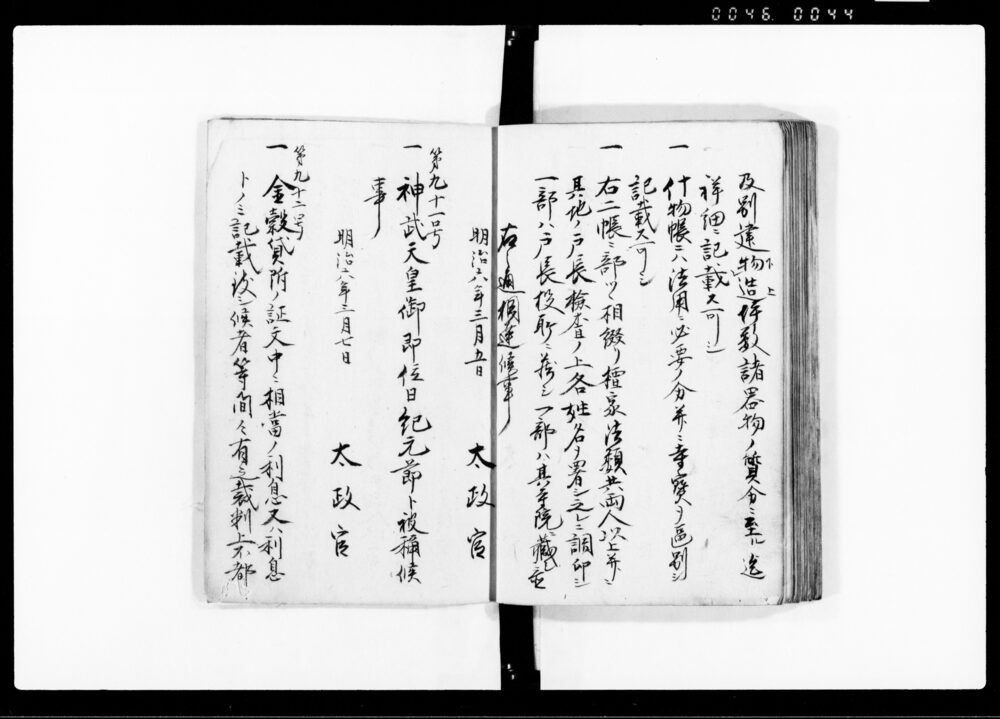 0046.0044
及別建物造作教諸器物ノ質分ニ至ル迄
下 上
祥細ニ記載ス可シ
一 什物帳ニハ法用ニ必要ノ分并ニ寺宝ヲ区別シ
記載ス可シ
一 右二帳二部ツヽ相綴リ檀家法類共両人以上并ニ
其地ノ戸長検査ノ上各姓名ヲ署シ之レニ調印シ
一部ハ戸長役所ニ蔵シ一部ハ其寺院ニ蔵
右之通相達候事
明治六年三月五日 太政官
第九十一号
一 神武天皇御即位日紀元節ト被称候
事
明治六年三月七日 太政官
第九十二号
一 金穀貸附ノ証文中ニ相當ノ利息又ハ利息
トノミ記載致シ候者等間々有之裁判上不都